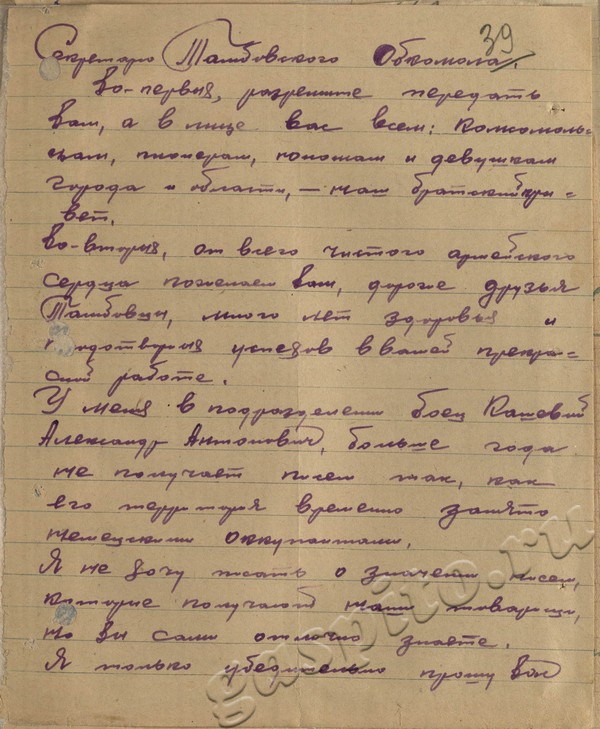 39
Секретарю Тамбовского Обкомола.
Во-первых, разрешите передать
Вам, а в лице вас всем: комсомоль-
цам, пионерам, юношам и девушкам
города и области, — наш братский при-
вет.
Во-вторых, от всего чистого армейского
сердца пожелаем Вам, дорогие друзья
Тамбовцы, много лет здоровья и
плодотворных успехов в вашей прекра-
сной работе.
У меня в подразделении боец
Александр Антонович, больше года
не получает писем так, как
его территория временно занята
немецкими оккупантами.
Я не хочу писать о значении писем,
которые получают наши товарищи,
но вы сами отлично знаете.
Я только убедительно прошу Вас
gaspito.ru